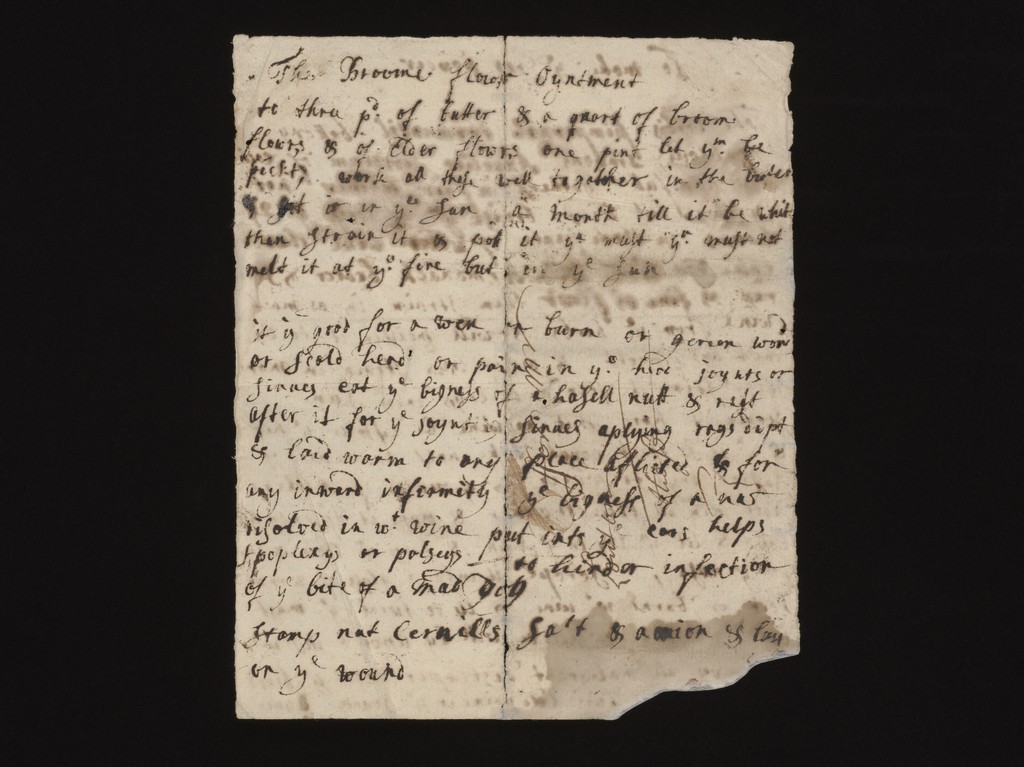 The Broome flowr Oyntment
to three pd. of butter & a quart of broom
flowrs & of Elder flowrs one pint let ym. be
pickt, work all these well together in the butter
& sit it in ye. Sun a Month till it be whit
then strain it & pot it ye must must not
melt it at ye. fire but in ye Sun
it is good for a wen a burn or green wond
or scold head or pain in ye. joynts or
sinues eat ye bigness of a hasell nutt & rest
after it for ye joynt sinues aplying rags dipt
& laid warm to any place aflicted & for
any inward infermity ye bigness of a nut
disolved in wt. wine put into ye ears helps
Apoplexys or palseys — to hindor infection
of ye bite of a mad dog
stamp nut Cernills Salt & a onion & lay
on ye wound